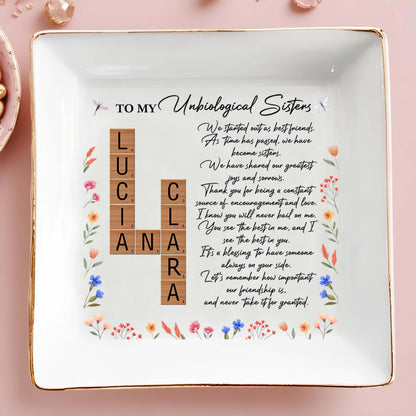 TO MY Unbiological Sisters
LUCIA
ANA
CLARA
We started out as best friends.
As time has passed, we have
become sisters.
We have shared our greatest
joys and sorrows.
Thank you for being a constant
source of encouragement and love.
I know you will never bail on me.
You see the best in me, and I
see the best in you.
It's a blessing to have someone
always on your side.
Let's remember how important
our friendship is,
and never take it for granted.